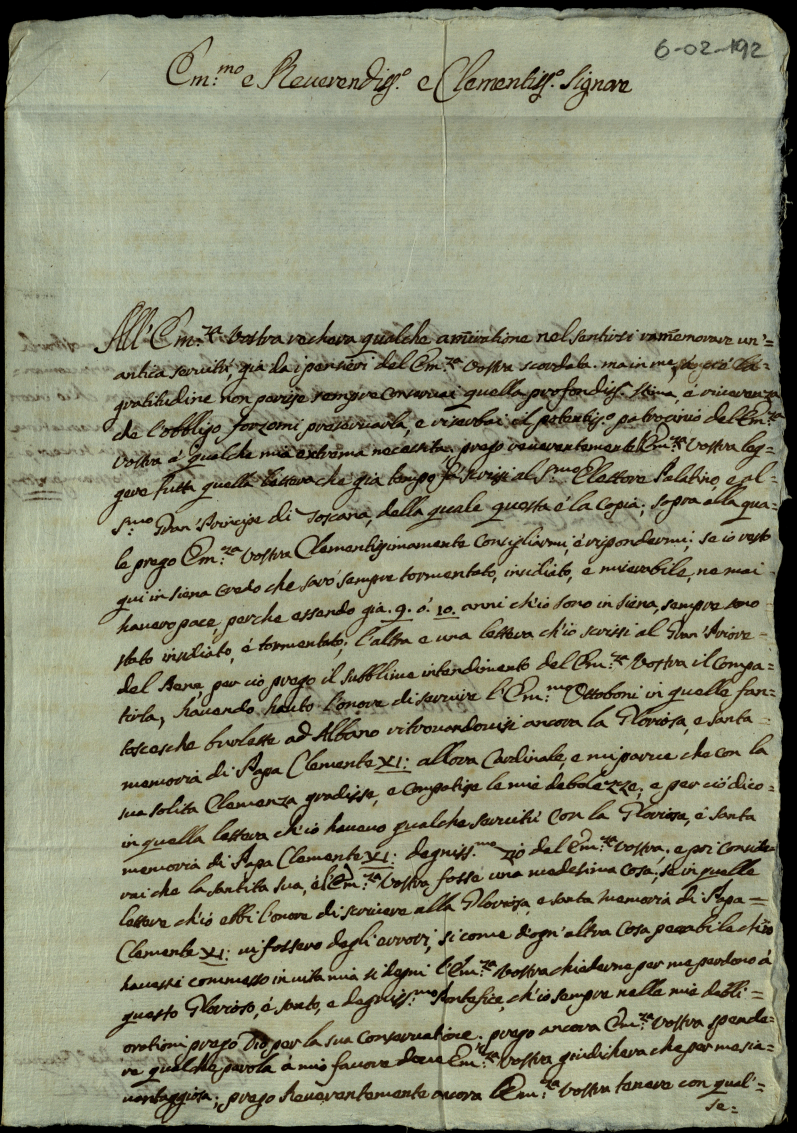 6-02-192
Em:mo e Reverendiss.o e Clementiss.o Signore
All'Em:za Vostra rechera qualche amiratione nel sentirsi ramemorare un'=
antica servitù già da i pensieri dell'Em:za Vostra scordata. ma in me
gratitudine non perisse sempre conservai quella profondiss. stima, e riverenza
che l'obbligo forzomi preservarla, e riserbai il potentiss.o patrocinio dell'Em:za
Vostra à qualche mia extrema necessita. prego reverentemente l'Em:za Vostra leg=
gere tutta quella lettera che già tempo fa scrissi al S:mo Elettore Palatino, e al=
S:mo Gran Principe di Toscana, della quale questa é la Copia; sopra alla qua=
le prego Em:za Vostra Clementissimamente Consigliarmi, é rispondermi; se io resto
qui in Siena credo che sarò sempre tormentato, insidiato, e miserabile, ne mai
haverò pace, perche essendo già .9. ó. 10. anni ch'io sono in Siena, sempre sono
stato insidiato, é tormentato; l'altra e una lettera ch'io scrissi al Gran Priore=
del Bene, per ciò prego il subblime intendimento dell'Em:za Vostra il Compa=
tirla, havendo hauto l'onore di servire l'Em:mo Ottoboni in quelle fan=
tocesche burlette ad Albano ritrovandovisi ancora la Gloriosa, e santa=
memoria di Papa Clemente XI: allora Cardinale, e mi parve che con la
sua solita Clemenza gradisse, e Compatisse le mie debolezze, e per ciò dico=
in quella lettera ch'io havevo qualche servitù con la Gloriosa, é santa
memoria di Papa Clemente XI: degniss:mo Zio dell'Em:za Vostra, e poi conside=
rai che la santità sua, é l'Em:za Vostra fosse una medesima cosa; se in quelle
lettere ch'io ebbi l'onore di scrivere alla Gloriosa, e santa memoria di Papa=
Clemente XI: vi fossero degli errori, si come d'ogn'altra cosa peccabile ch'io
havessi commesso in vita mia si degni l'Em:za Vostra chiederne per me perdono à
questo Glorioso, é santo, e degniss:mo Pontefice, ch'io sempre nelle mie debli=
orationi prego Dio per la sua Conservatione. prego ancora Em:za Vostra spende=
re qualche parola à mio favore dove Em:za Vostra giudichera che per me sia=
vantaggiosa; prego Reverentemente ancora l'Em:za Vostra tenere con qual=
se=